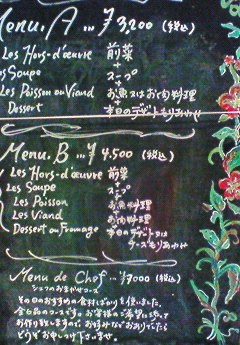 Menu. A … ¥3,200 (税込)
Les Hors-d'œuvre 前菜
+
Les Soupe スープ
+
Les Poisson ou Viand お魚又はお肉料理
+
Dessert 本日のデザートもりあわせ
Menu. B … ¥4,500 (税込)
Les Hors-d'œuvre 前菜
Les Soupe スープ
Les Poisson お魚料理
Les Viand お肉料理
Dessert ou Fromage 本日デザート又は
チーズもりあわせ
Menu de Chef … ¥7000 (税込)
シェフのおまかせコース
その日のおすすめの食材ばかりを使いました、
全七品のコースです。お客様のご希望に添って
お作り致しますので、お好みなどおありでしたら
どうぞお申しつけ下さいませ。